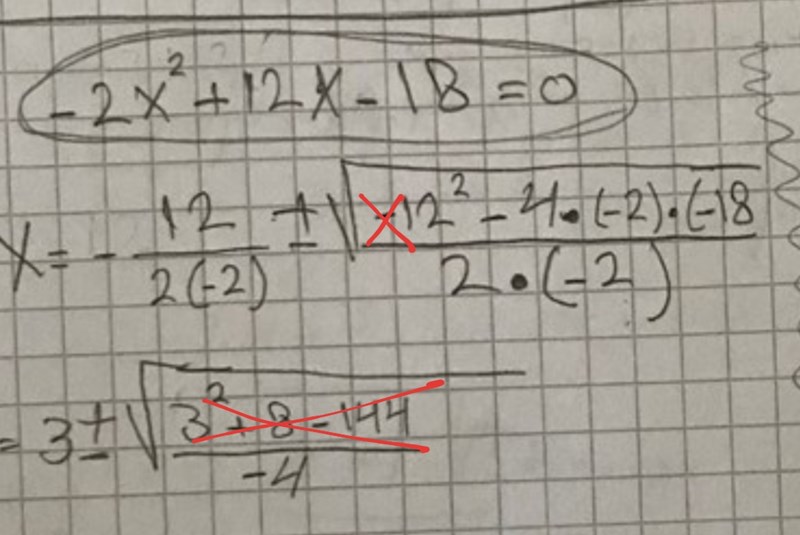 -2x² + 12x - 18 = 0
x = - 12/(2(-2)) ± √((-12² - 4·(-2)·(-18)/(2·(-2)))
= 3 ± √((3² + 8 - 144)/(-4))